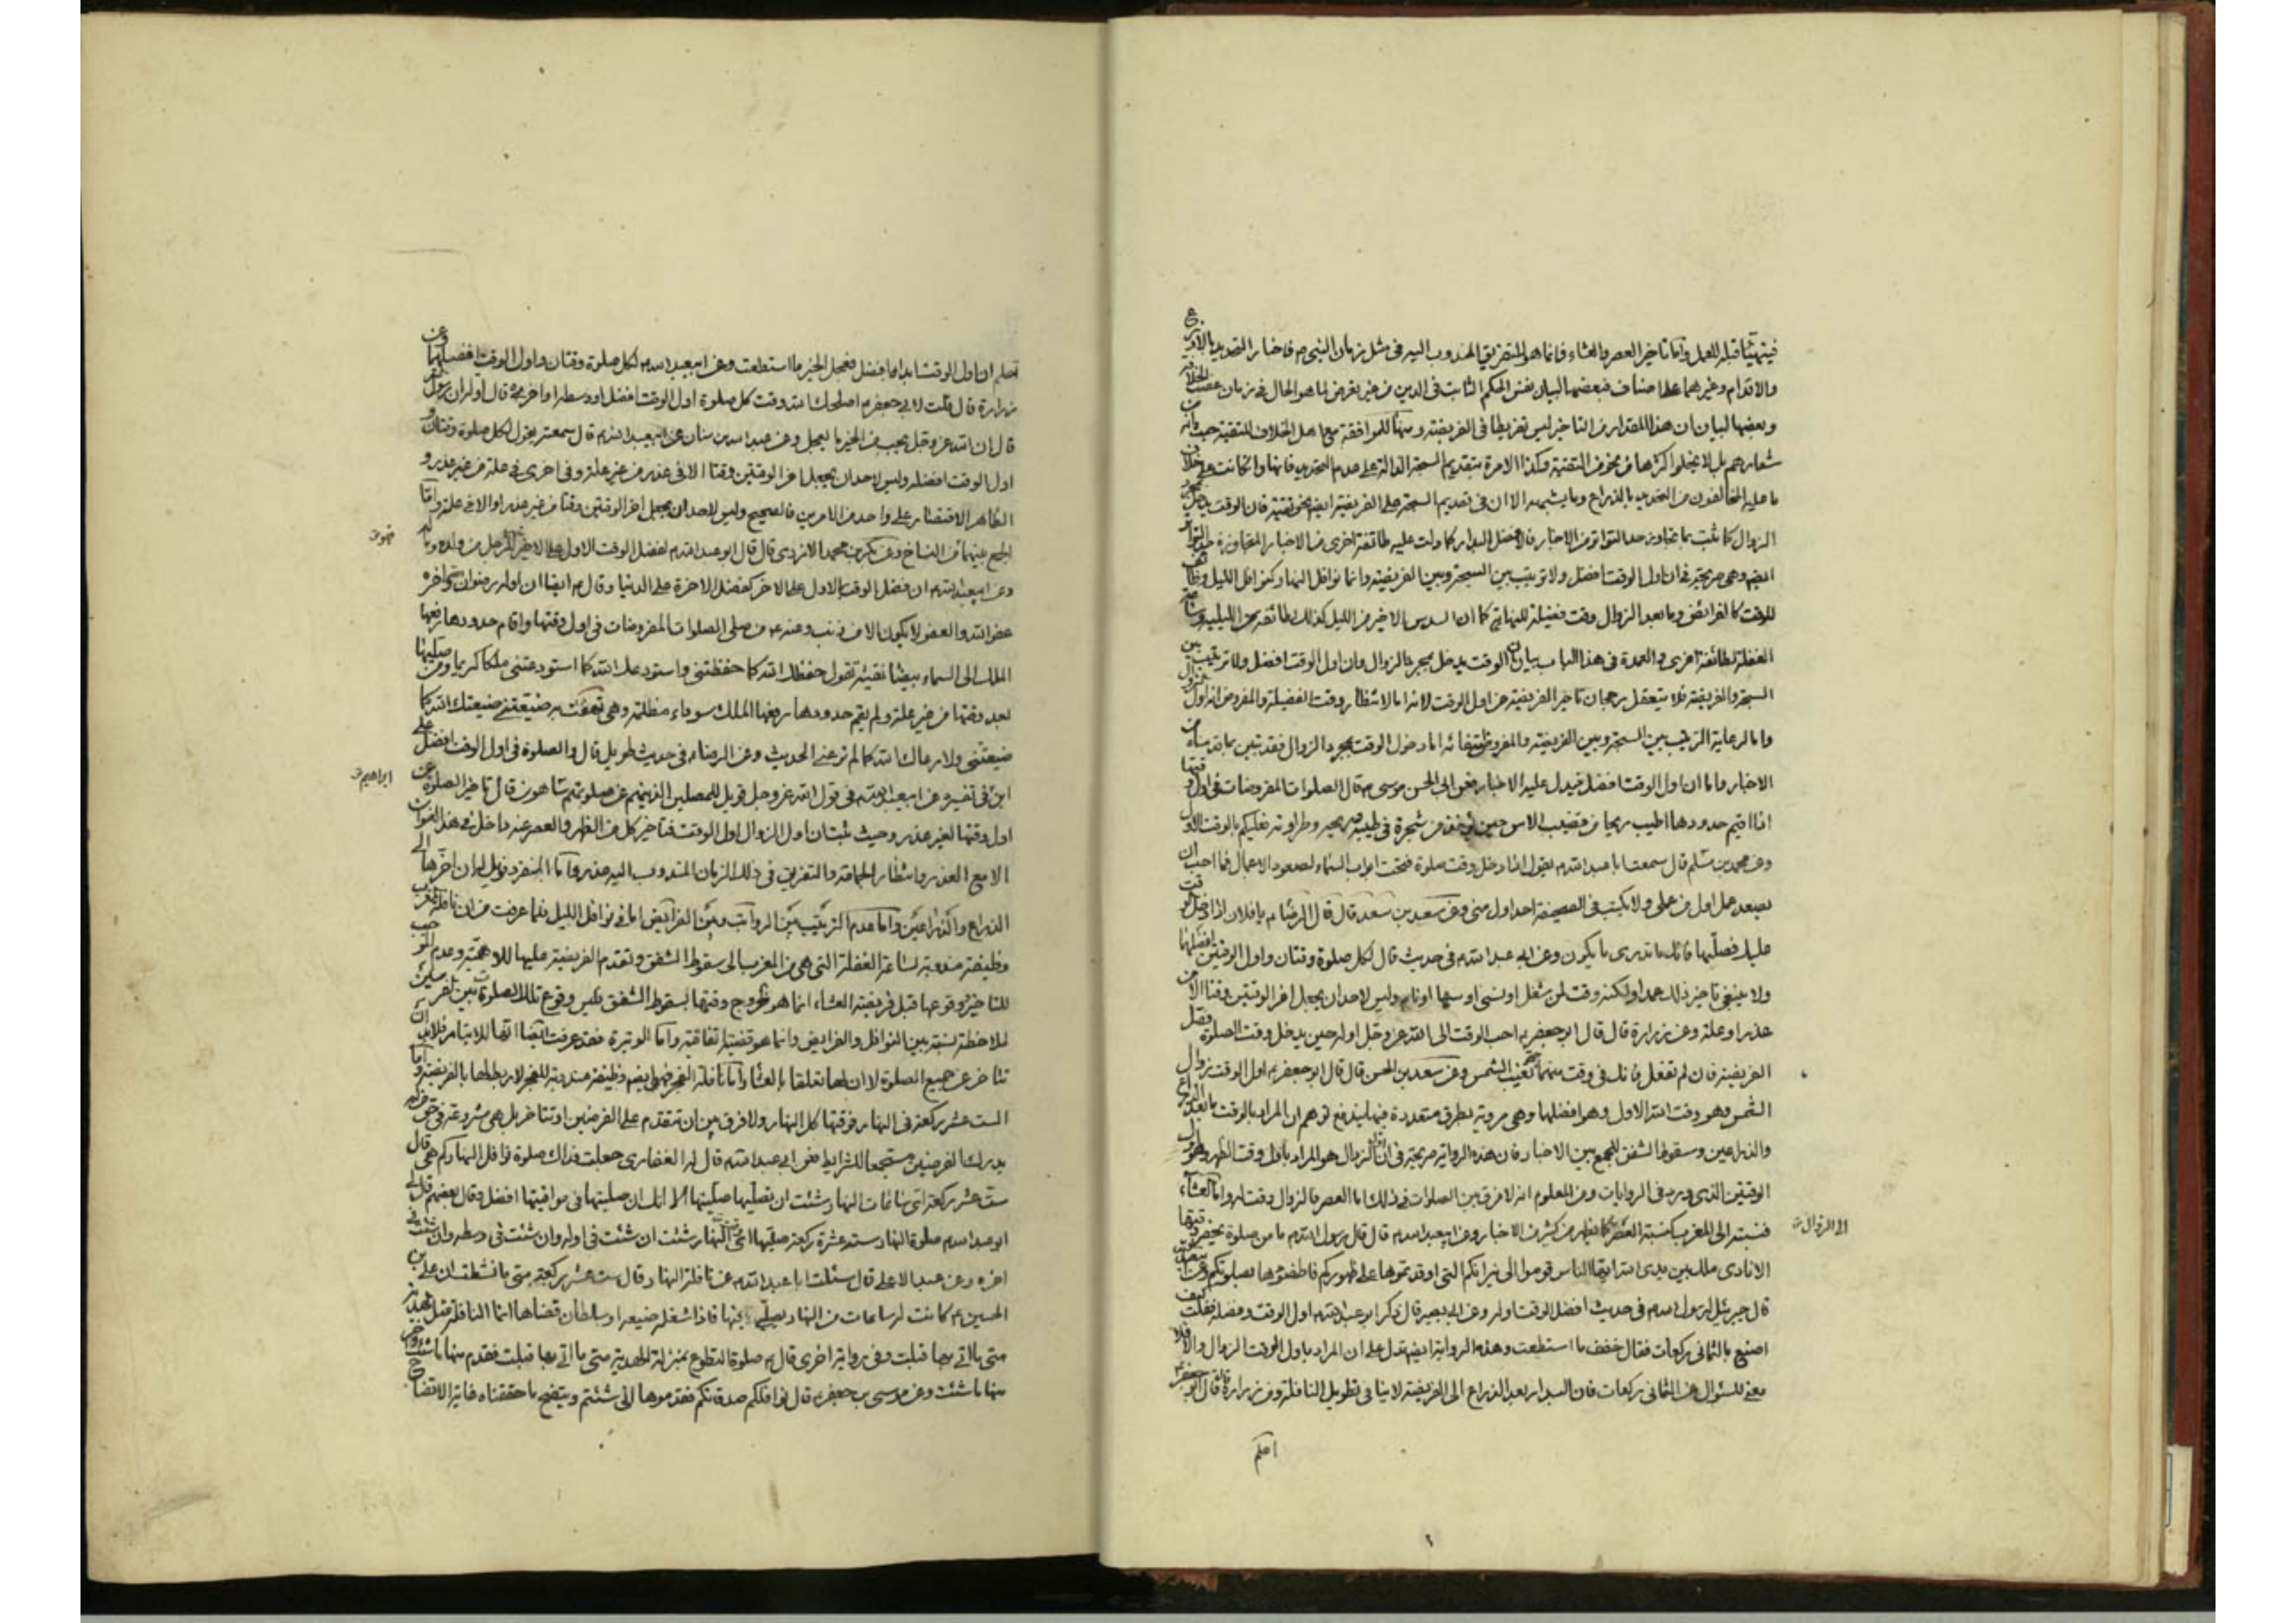 فيتهيأ قبله للعمل واما تاخير العصر والعشاء فانما هو للتفريق المندوب اليه فى مثل زمان النبى ص فاختيار التحديد بالاذرع
والاقدام وغيرهما على اصناف فبعضها لبيان نفس الحكم الثابت فى الدين من غير تعرض لما هو الحال فى زمان غصب الخلافة
وبعضها لبيان ان هذا المقدار من التاخير ليس تفريطا فى الفريضة ومنها للموافقة مع اهل الخلاف للتقية حيث من
شعارهم بل لا يخلوا اكثرها من نحو من التقية وكذا الامرة بتقديم السبحة الدالة على عدم التحديد فانها وان كانت على خلاف
ما عليه المخالفون من التحديد بالذراع وما يشبهه الا ان فى تقديم السبحة على الفريضة ايضا نحو تقية فان الوقت يدخل بمجرد
الزوال كما ثبت بما تجاوز حد التواتر من الاخبار فالافضل البدار كما دلت عليه طائفة اخرى من الاخبار المتجاوزة حد التواتر
ايضا وهى صريحة فى ان اول الوقت افضل ولا ترتيب بين السبحة وبين الفريضة وانما نوافل النهار كنوافل الليل وظائف
للوقت كالفرائض وما بعد الزوال وقت فضيلة للنهارية كما ان السدس الاخير من الليل كذلك لطائفة من الليلية وساعة
الغفلة لطائفة اخرى والعمدة فى هذا الباب بيان ان الوقت يدخل بمجرد الزوال وان اول الوقت افضل ولا ترتيب بين
السبحة والفريضة فلا يتعقل رجحان تاخير الفريضة عن اول الوقت لانه اما لانتظار وقت الفضيلة والمفروض انه اول الزوال
واما لرعاية الترتيب بين السبحة وبين الفريضة والمفروض انتفائه اما دخول الوقت بمجرد الزوال فقد تبين بما قدمناه من
الاخبار واما ان اول الوقت افضل فيدل عليه الاخبار فعن ابى الحسن موسى ع قال الصلوات المفروضات فى اول وقتها
اذا اقيم حدودها اطيب ريحا من قضيب الاس حين يؤخذ من شجرة فى طيبه وريحه وطراوته فعليكم بالوقت الاول
وعن محمد بن مسلم قال سمعت ابا عبد الله ع يقول اذا دخل وقت صلوة فتحت ابواب السماء لصعود الاعمال فما احب ان
يصعد عمل اول من عملى ولا يكتب فى الصحيفة احد اول منى وعن سعد بن سعد قال قال الرضا ع يا فلان اذا دخل الوقت
عليك فصلّيها فانك ما تدرى ما يكون وعن ابى عبد الله ع فى حديث قال لكل صلوة وقتان واول الوقتين افضلهما
ولا ينبغى تاخير ذلك عمدا ولكنه وقت لمن شغل او نسى او سها او نام وليس لاحد ان يجعل اخر الوقتين وقتا الا من
عذر او علة وعن زرارة قال قال ابو جعفر ع احب الوقت الى الله عز وجل اوله حين يدخل وقت الصلوة فصل
الفريضة فان لم تفعل فانك فى وقت منهما حتى تغيب الشمس وعن سعد بن الحسن قال قال ابو جعفر ع اول الوقت زوال
الشمس وهو وقت الله الاول وهو افضلهما وهى مروية بطرق متعددة فبها يندفع توهم ان المراد بالوقت ما بعد الذراع
والذراعين وسقوط الشفق للجمع بين الاخبار فان هذه الرواية صريحة فى ان الزوال هو المراد باول وقت الظهر وهو اول
الوقتين الذى ورد فى الروايات ومن المعلوم انه لا فرق بين الصلوات فى ذلك اما العصر فالزوال وقت له واما العشاء
فنسبته الى المغرب كنسبة العصر الى الزوال كما يظهر من كثير من الاخبار وعن ابى عبد الله ع قال قال رسول الله ص ما من صلوة يحضر وقتها
الا نادى ملك بين يدى الله ايها الناس قوموا الى نيرانكم التى اوقدتموها على ظهوركم فاطفئوها بصلوتكم وعن سعيد
قال جبرئيل لرسول الله ص فى حديث افضل الوقت اوله وعن ابى بصير قال ذكر ابو عبد الله ع اول الوقت وفضله فقلت كيف
اصنع بالثمانى ركعات فقال خفف ما استطعت وهذه الرواية ايضا تدل على ان المراد باول الوقت الزوال والا فلا
معنى للسؤال عن الثمانى ركعات فان البدار بعد الذراع الى الفريضة لا ينافى تطويل النافلة وعن زرارة قال قال ابو جعفر ع
اعلم
اعلم ان اول الوقت ابدا افضل فعجل الخير ما استطعت وعن ابى عبد الله ع لكل صلوة وقتان واول الوقت افضلهما وعن
زرارة قال قلت لابى جعفر ع اصلحك الله وقت كل صلوة اول الوقت افضل او وسطه او اخره قال اوله ان رسول الله
قال ان الله عز وجل يحب من الخير ما يعجل وعن عبد الله بن سنان عن ابى عبد الله ع قال سمعته يقول لكل صلوة وقتان و
اول الوقت افضله وليس لاحد ان يجعل اخر الوقتين وقتا الا فى عذر من غير علة وفى اخرى فى علة من غير عذر و
الظاهر الاقتصار على واحد من الامرين فالصحيح وليس لاحد ان يجعل اخر الوقتين وقتا من غير عذر او الا فى علة واما
الجمع بينهما فمن النساخ وعن بكر بن محمد الازدى قال قال ابو عبد الله ع لفضل الوقت الاول على الاخير خير للرجل من ولده وماله
وعن ابى عبد الله ع ان فضل الوقت الاول على الاخر كفضل الاخرة على الدنيا وقال ع ايضا ان اوله رضوان الله واخره
عفو الله والعفو لا يكون الا من ذنب وعنه ع من صلى الصلوات المفروضات فى اول وقتها واقام حدودها رفعها
الملك الى السماء بيضاء نقية تقول حفظك الله كما حفظتنى واستودعك الله كما استودعتنى ملكا كريما ومن صليها
بعد وقتها من غير علة ولم يقم حدودها رفعها الملك سوداء مظلمة وهى تهتف به ضيعتنى ضيعك الله كما
ضيعتنى ولا رعاك الله كما لم ترعنى الحديث وعن الرضا ع فى حديث طويل قال والصلوة فى اول الوقت افضل وعن على
ابراهيم
ابن فى تفسيره عن ابى عبد الله ع فى قول الله عز وجل فويل للمصلين الذين هم عن صلوتهم ساهون قال تاخير الصلوة عن
اول وقتها لغير عذر وحيث ثبت ان اول الزوال اول الوقت فتاخير كل من الظهر والعصر عنه داخل فى هذا العنوان
الا مع العذر وانتظار الجماعة والتفريق فى ذلك الزمان المندوب اليه عذر واما المنفرد فويل له ان اخرها الى
الذراع والذراعين واما عدم الترتيب بين الرواتب وبين الفرايض اما فى نوافل الليل فلما عرفت من ان نافلة المغرب
وظيفة مندوبة لساعة الغفلة التى هى من المغرب الى سقوط الشفق وتقدم الفريضة عليها للاهمية وعدم التوجب
للتاخير ووقوعها قبل فريضة العشاء انما هو لخروج وقتها بسقوط الشفق فليس وقوع تلك الصلوة بين الفرضين
لملاحظة نسبة بين النوافل والفرايض وانما هو قضية اتفاقية واما الوتيرة فقد عرفت ايضا انها للايتار فلابد ان
تتاخر عن جميع الصلوة لا ان لها تعلقا بالعشاء واما نافلة الفجر فهى ايضا وظيفة مندوبة للفجر لا ربط لها بالفريضة واما
الست عشر ركعة فى النهار فوقتها كل النهار ولا فرق بين ان تتقدم على الفرضين او تتاخر بل هى مشروعة فى حق من لم
يدرك الفرضين مستجمعا للشرايط فعن ابى عبد الله ع قال له الغفارى جعلت فداك صلوة نوافل النهار كم هى قال
ست عشر ركعة اى ساعات النهار شئت ان تصليها صليتها الا انك ان صليتها فى مواقيتها افضل وقال بعضهم قال لى
ابو عبد الله ع صلوة النهار ست عشرة ركعة صليها اى النهار شئت ان شئت فى اوله وان شئت فى وسطه وان شئت فى
اخره وعن عبد الاعلى قال سئلت ابا عبد الله ع عن نافلة النهار قال ست عشر ركعة متى ما نشطت ان على بن
الحسين ع كانت له ساعات من النهار يصلى فيها فاذا شغله ضيعة او سلطان قضاها انما النافلة مثل الهدية
متى ما اتى بها قبلت وفى رواية اخرى قال ع صلوة التطوع بمنزلة الهدية متى ما اتى بها قبلت فقدم منها ما شئت واخر
منها ما شئت وعن موسى بن جعفر ع قال نوافلكم صدقاتكم فقدموها انى شئتم ويتضح ما حققناه غاية الاتضاح